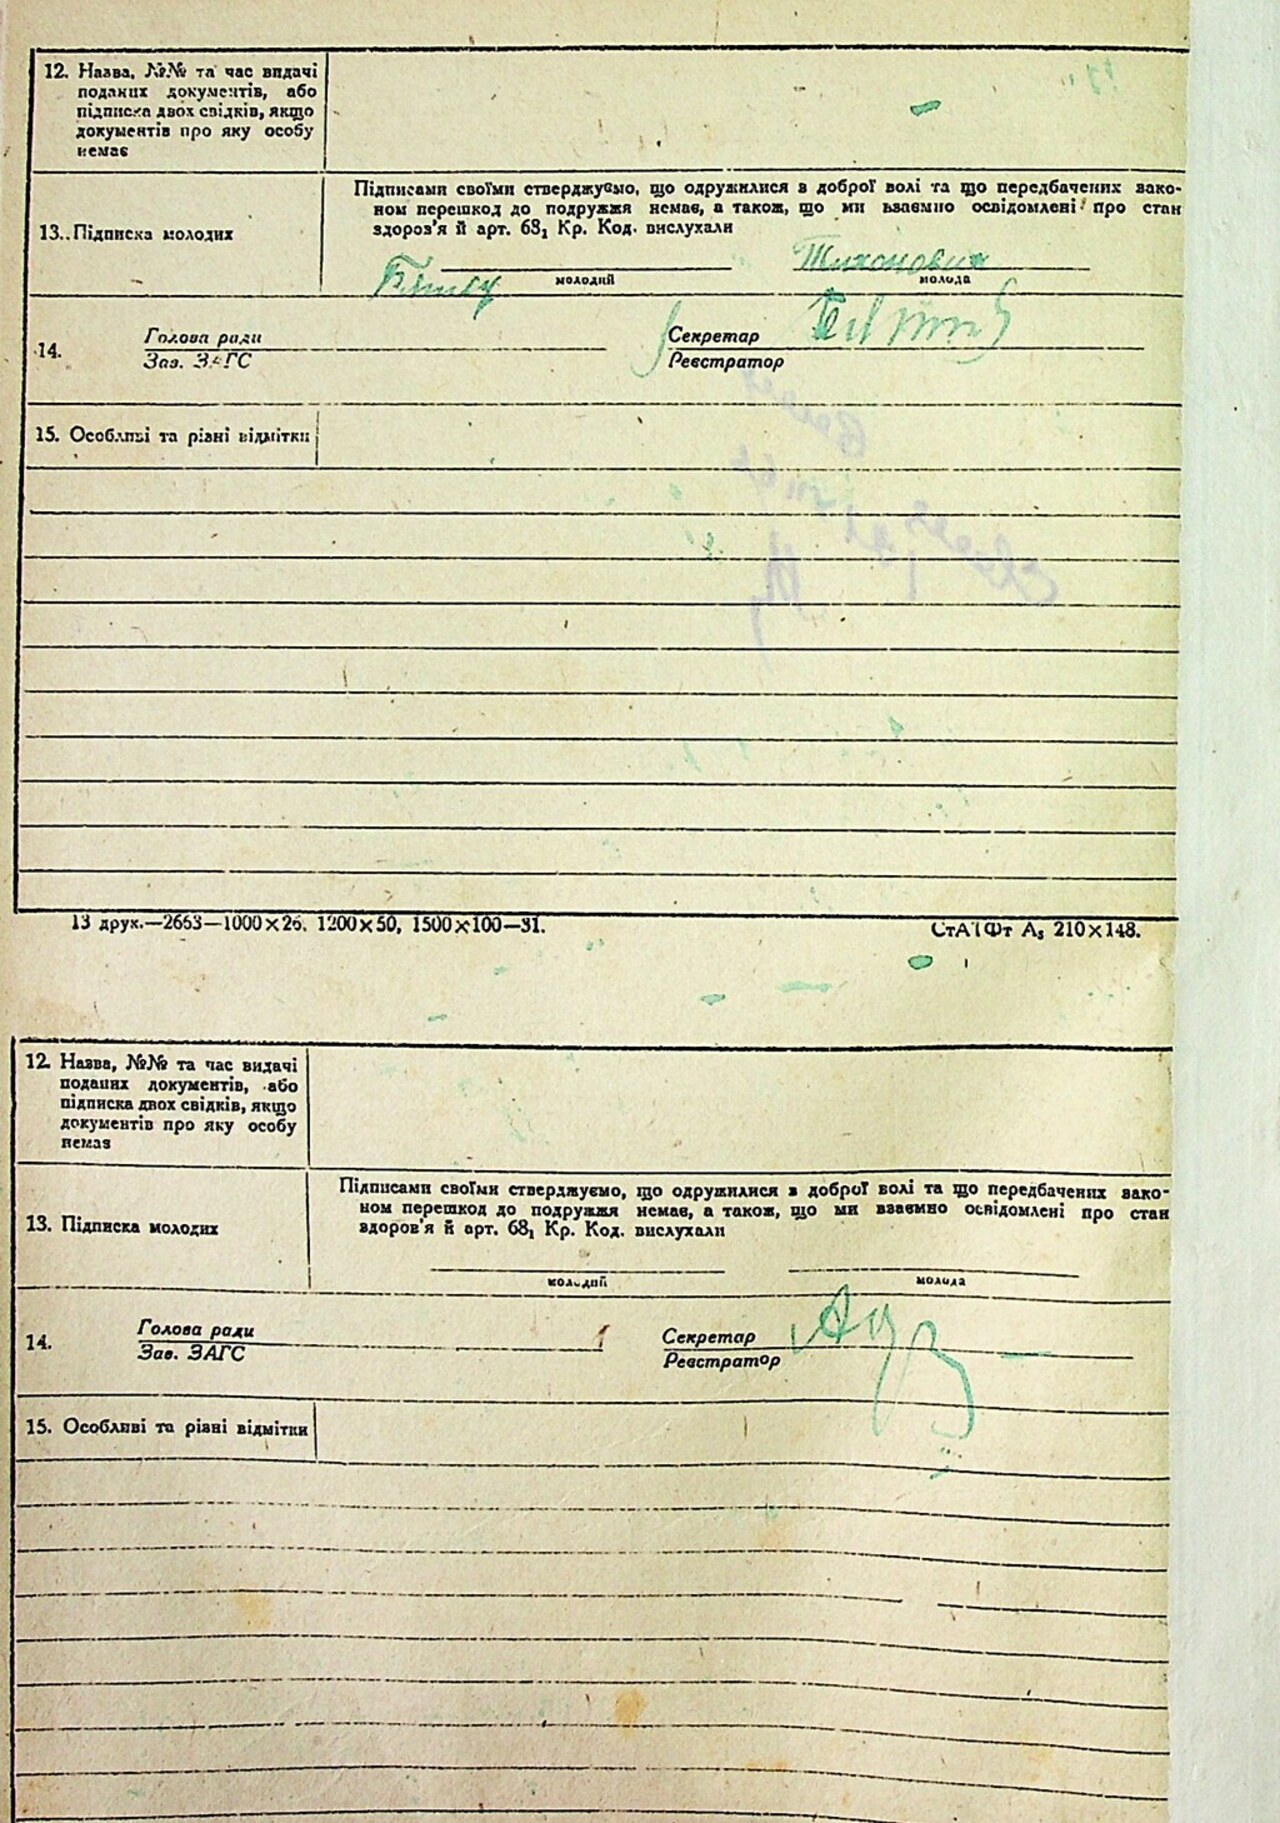 12. Назва, №№ та час видачі
поданих документів, або
підписка двох свідків, якщо
документів про яку особу
немає
Підписами своїми стверджуємо, що одружилися в доброї волі та що передбачених зако-
ном перешкод до подружжя немає, а також, що ми взаємно освідомлені про стан
здоров'я й арт. 68₁ Кр. Код. вислухали
13. Підписка молодих
Тихонович
молодий молода
14. Голова ради Секретар
Зав. ЗАГС Реєстратор
15. Особливі та різні відмітки
13 друк.—2663—1000×26. 1200×50, 1500×100—31.
СтАТФт А₅ 210×148.
12. Назва, №№ та час видачі
поданих документів, або
підписка двох свідків, якщо
документів про яку особу
немає
Підписами своїми стверджуємо, що одружилися з доброї волі та що передбачених зако-
ном перешкод до подружжя немає, а також, що ми взаємно освідомлені про стан
здоров'я й арт. 68₁ Кр. Код. вислухали
13. Підписка молодих
молодий молода
14. Голова ради Секретар
Зав. ЗАГС Реєстратор
15. Особливі та різні відмітки